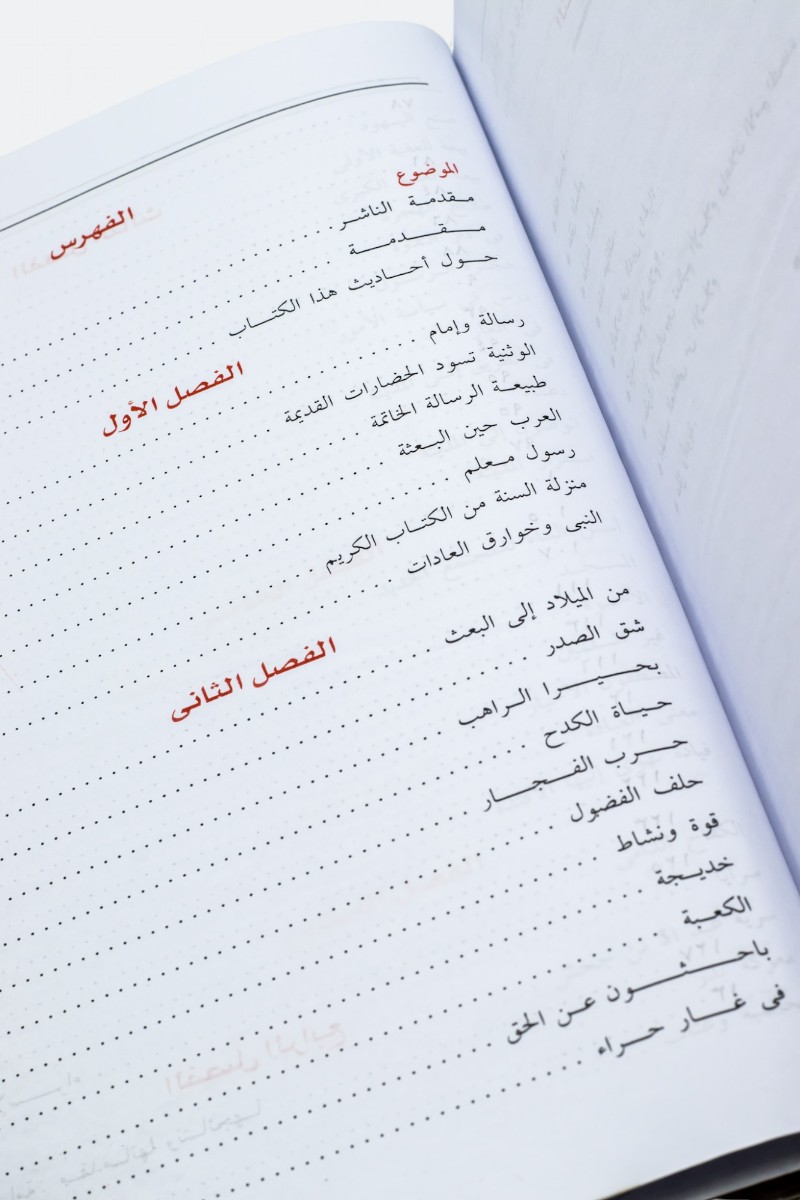 الفهرس
الموضوع
مقدمة الناشر
مقدمة
حول أحاديث هذا الكتاب
الفصل الأول
رسالة وإمام
الوثنية تسود الحضارات القديمة
طبيعة الرسالة الخاتمة
العرب حين البعثة
رسول معلم
منزلة السنة من الكتاب الكريم
النبى وخوارق العادات
الفصل الثانى
من الميلاد إلى البعث
شق الصدر
بحيرا الراهب
حياة الكدح
حرب الفجار
حلف الفضول
قوة ونشاط
خديجة
الكعبة
باحثون عن الحق
فى غار حراء